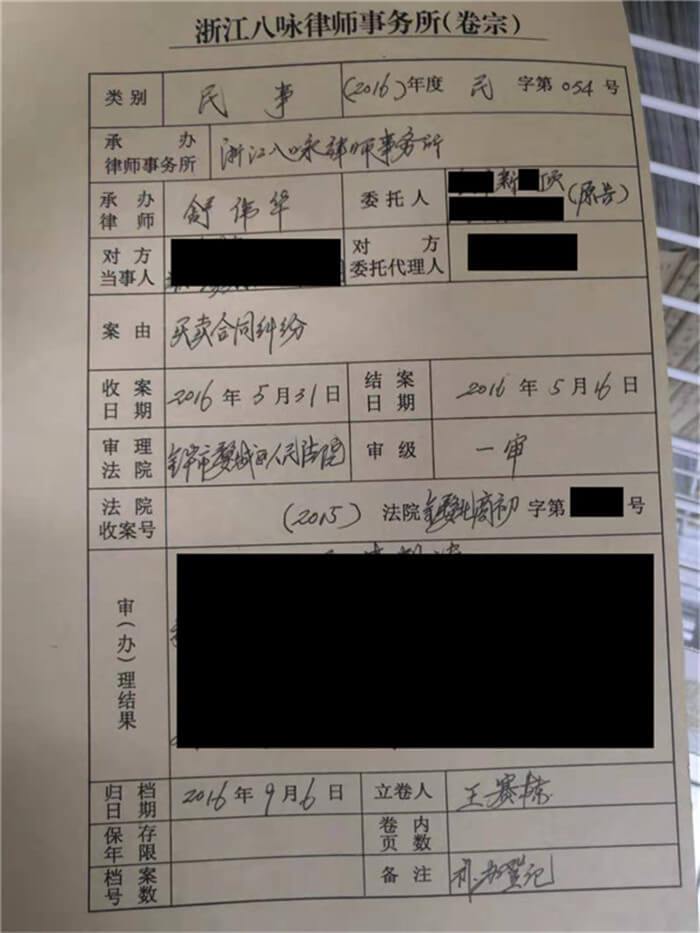 浙江八咏律师事务所(卷宗)
类别 民事 (2016)年度 民 字第 054 号
承办律师事务所 浙江八咏律师事务所
承办律师 舒伟华 委托人 新 (原告)
对方当事人 对方委托代理人
案由 买卖合同纠纷
收案日期 2016年5月31日 结案日期 2016年5月16日
审理法院 金华市婺城区人民法院 审级 一审
法院收案号 (2015) 法院 商初 字第 号
审(办)理结果
归档日期 2016年9月6日 立卷人 王赛
保存年限 卷内页数
档案号数 备注 补办登记